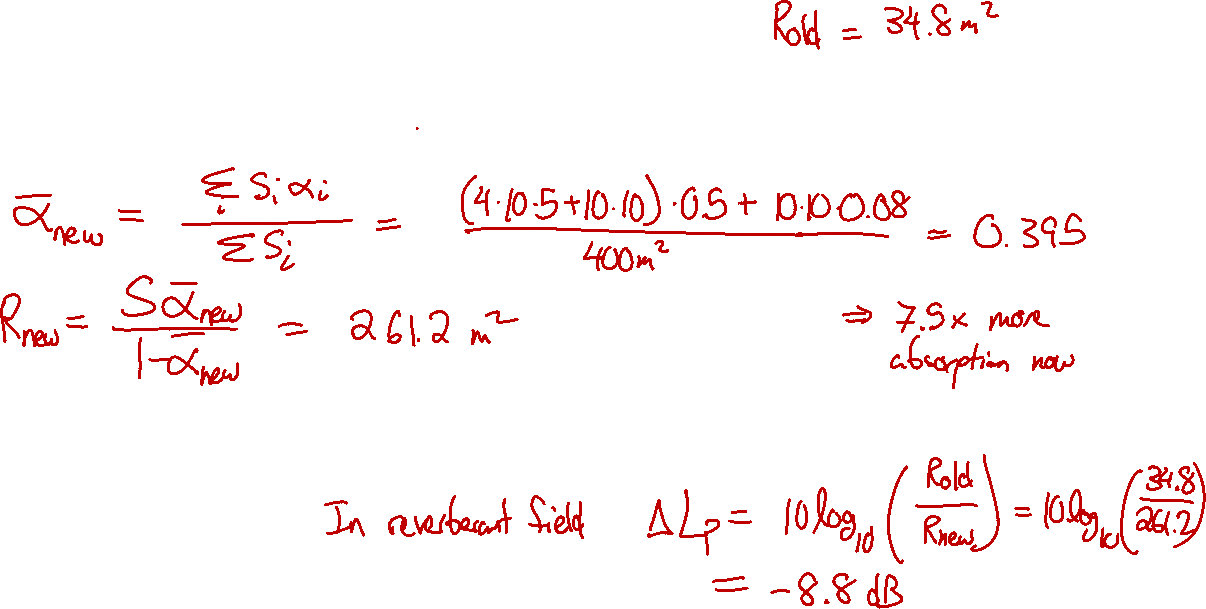 Rold = 34.8 m²
ᾱnew = Σi Si αi / ΣSi = (4·10·5+10·10)·0.5 + 10·10·0.08 / 400m² = 0.395
Rnew = Sᾱnew / 1-ᾱnew = 261.2 m² ⇒ 7.5x more
absorption now
In reverberant field ΔLp = 10log10 (Rold / Rnew) = 10log10 (34.8 / 261.2)
= -8.8 dB